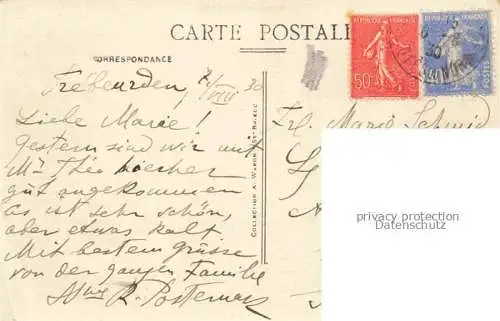 CARTE POSTALE
CORRESPONDANCE
RÉPUBLIQUE FRANÇAISE
50c
RÉPUBLIQUE FRANÇAISE
POSTES
Trébeurden, VIII 30
Liebe Marie!
gestern sind wir mit
Mr Théo
gut angekommen
es ist sehr schön,
aber etwas kalt
Mit bestem grüsse
von der ganzen Familie
Mme R. Posternak
COLLECTION A. WARON ST BRIEUC
Frl. Marie Schmid
privacy protection
Datenschutz